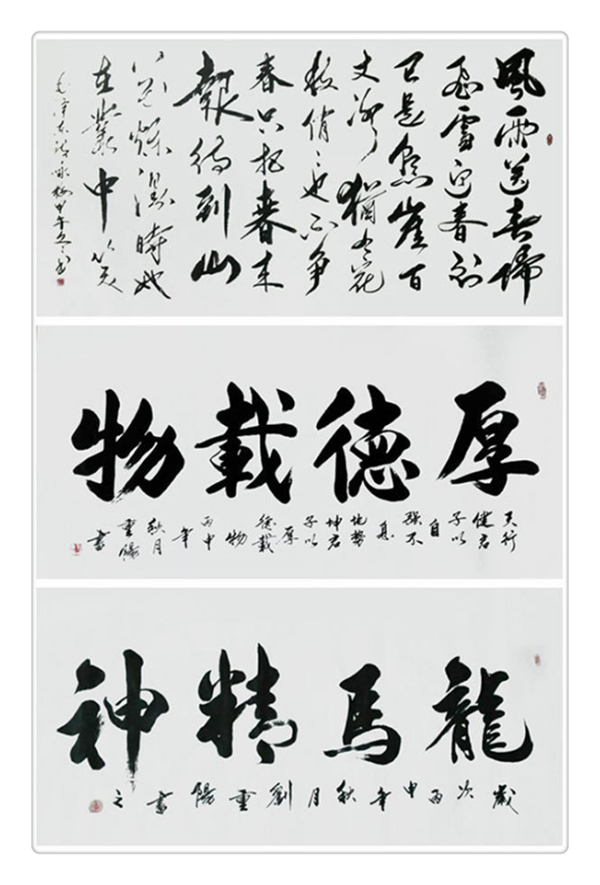 風雨送春歸
飛雪迎春到
已是懸崖百
丈冰猶有花
枝俏〻也不爭
春只把春來
報待到山
花爛漫時她
在叢中笑
毛澤東詞詠梅甲午冬書
厚德載物
天行
健君
子以
自
強不
息
地勢
坤君
子以
厚
德載
物
丙申
年
秋月
重陽
書
龍馬精神
歲次丙申年秋月劉重陽書之